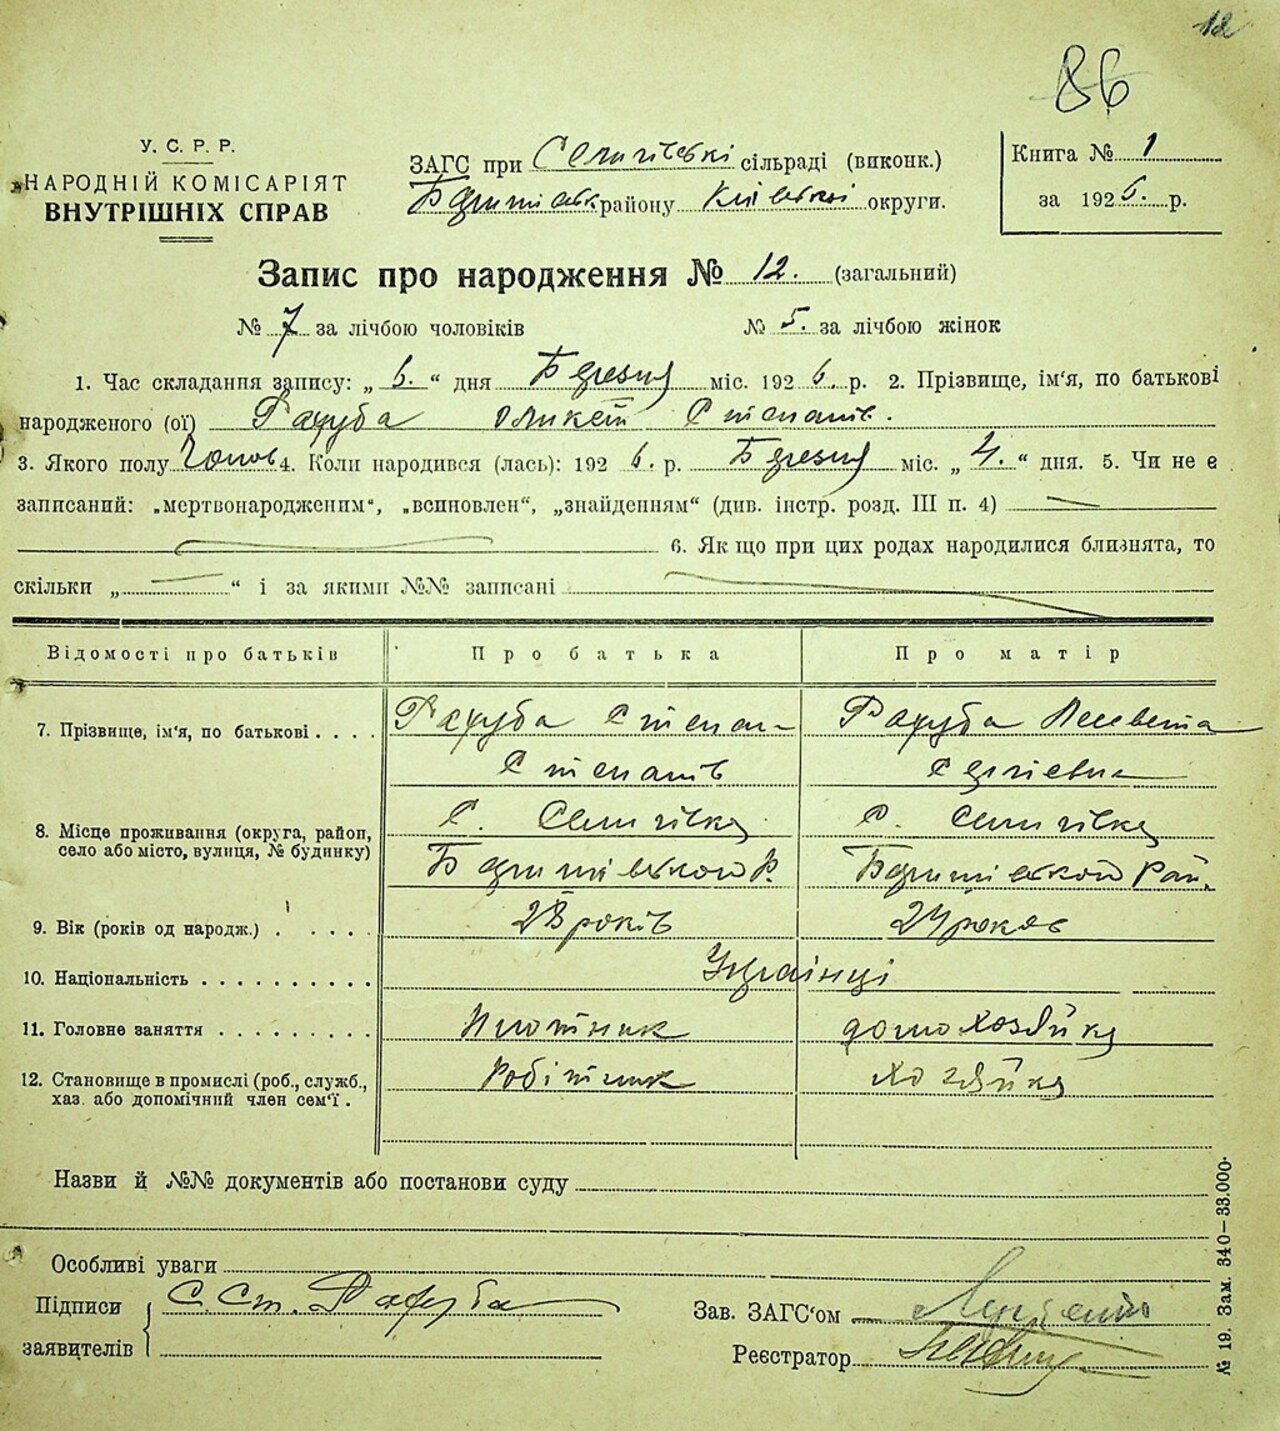 12
86
У. С. Р. Р.
НАРОДНІЙ КОМІСАРІЯТ
ВНУТРІШНІХ СПРАВ
ЗАГС при Семигівські сільраді (виконк.)
району Київської округи.
Книга № 1
за 1926. р.
Запис про народження № 12. (загальний)
№ 7 за лічбою чоловіків № 5. за лічбою жінок
1. Час складання запису: „ 6. “ дня Березня міс. 1926. р. 2. Прізвище, ім‘я, по батькові
народженого (ої) Рахуба Степанів.
3. Якого полу Чолов 4. Коли народився (лась): 1926. р. Березня міс. „ 4. “ дня. 5. Чи не є
записаний: „мертвонародженим“, „всиновлен“, „знайденням“ (див. інстр. розд. III п. 4)
6. Як що при цих родах народилися близнята, то
скільки „ “ і за якими №№ записані
Відомості про батьків Про батька Про матір
7. Прізвище, ім‘я, по батькові . . . . Рахуба Степан Рахуба Лесевета
Степанів Сергієвн
8. Місце проживання (округа, район, село або місто, вулиця, № будинку) С. Семигівка С. Семигівка
Р. Рай.
9. Вік (років од народж.) . . . . . 28 років 24 роков
10. Національність . . . . . . . . . . Українці
11. Головне заняття . . . . . . . . . Плотник домохозяйка
12. Становище в промислі (роб., служб., хаз. або допомічний член сем‘ї . Робітник Хозяйка
Назви й №№ документів або постанови суду
Особливі уваги
Підписи заявителів С. Ст. Рахуба
Зав. ЗАГС‘ом
Реєстратор
№ 19. Зам. 340—33.000.